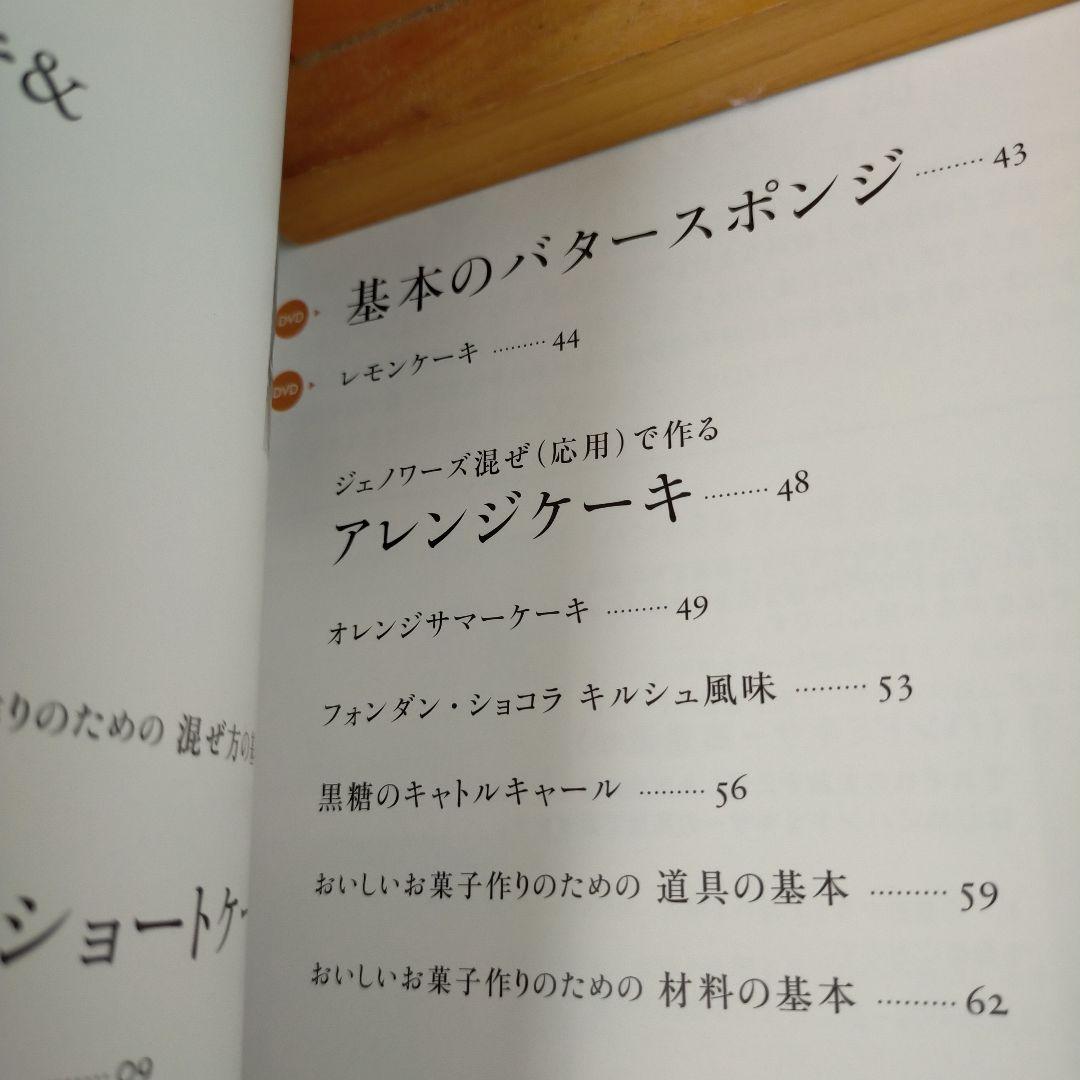 &
りのための 混ぜ方の基
ショートケー
09
DVD 基本のバタースポンジ ……… 43
DVD レモンケーキ ……… 44
ジェノワーズ混ぜ(応用)で作る
アレンジケーキ ……… 48
オレンジサマーケーキ ……… 49
フォンダン・ショコラ キルシュ風味 ……… 53
黒糖のキャトルキャール ……… 56
おいしいお菓子作りのための 道具の基本 ……… 59
おいしいお菓子作りのための 材料の基本 ……… 62